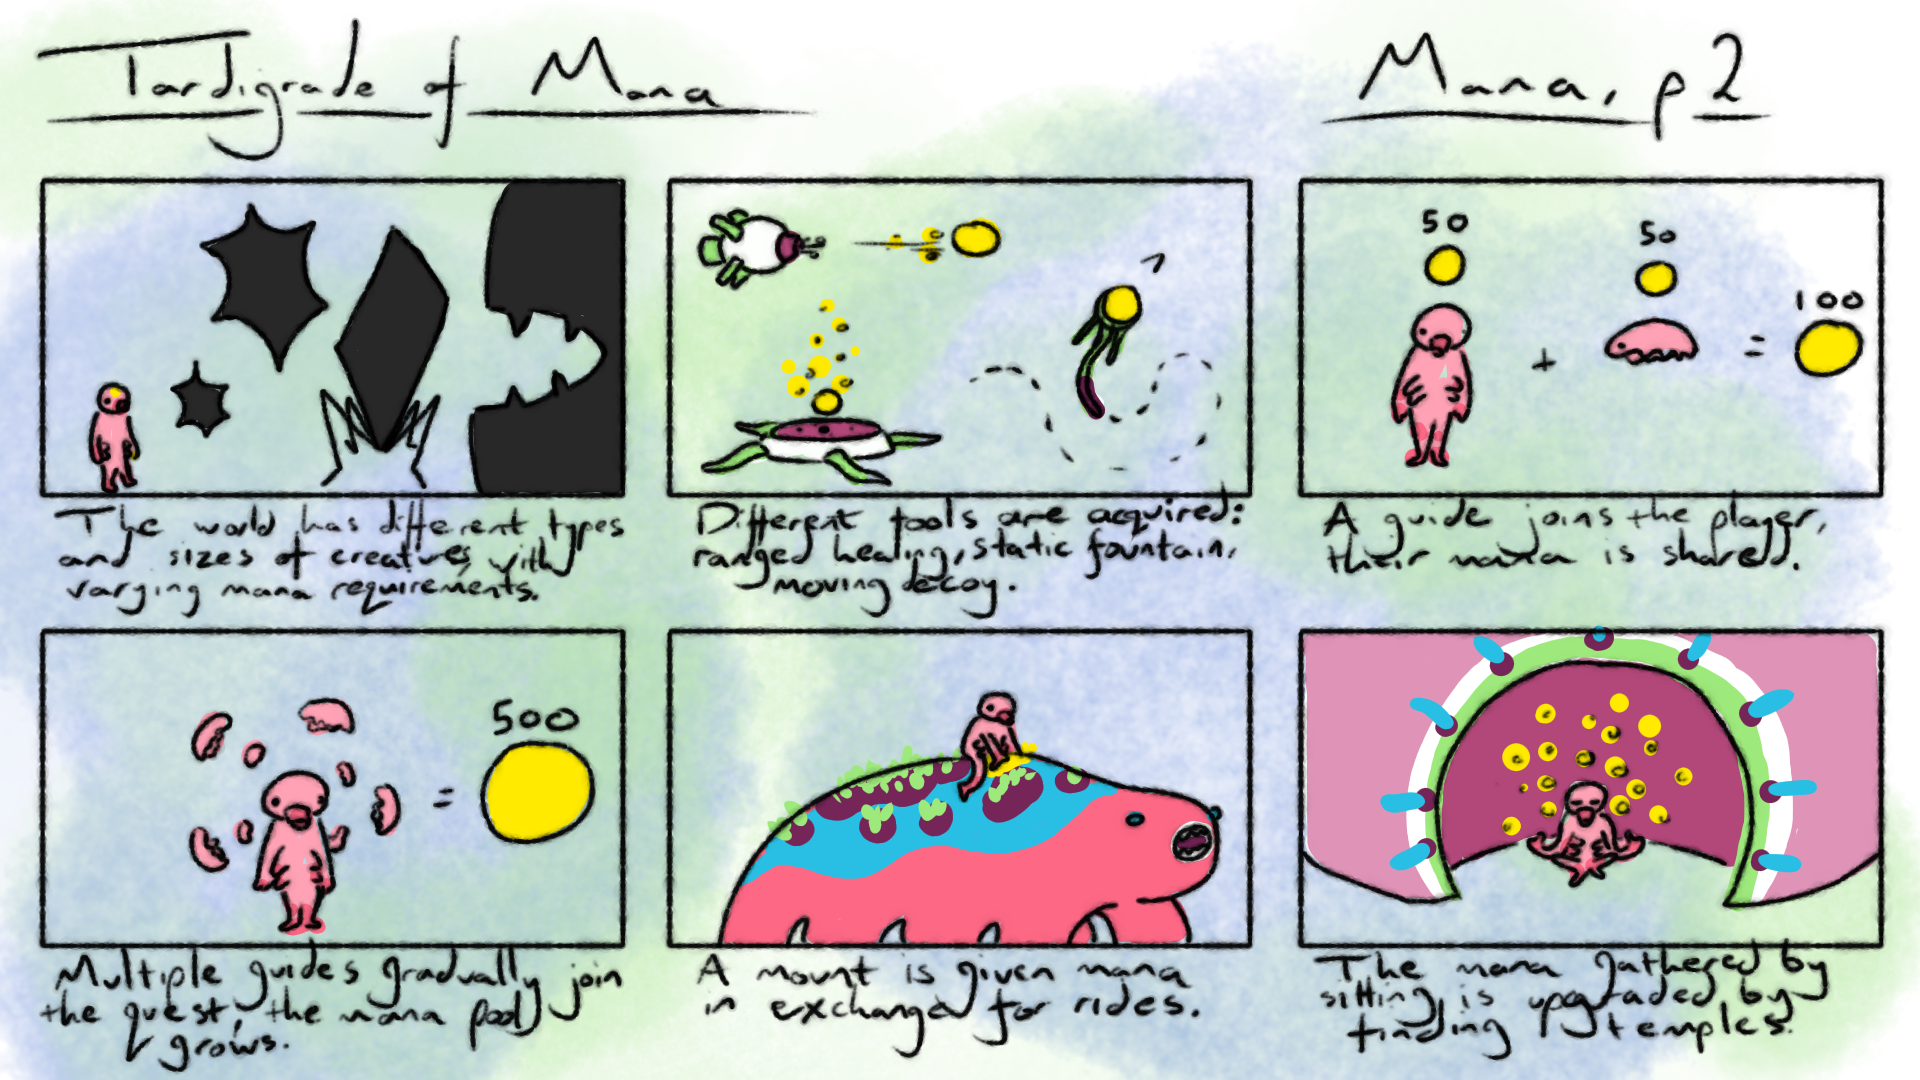 Tardigrade of Mana
Mana, p2
The world has different types
and sizes of creatures, with
varying mana requirements.
Different tools are acquired:
ranged healing, static fountain,
moving decoy.
50
50
100
+
=
A guide joins the player,
their mana is shared.
500
=
Multiple guides gradually join
the quest, the mana pool
grows.
A mount is given mana
in exchange for rides.
The mana gathered by
sitting, is upgraded by
finding temples.